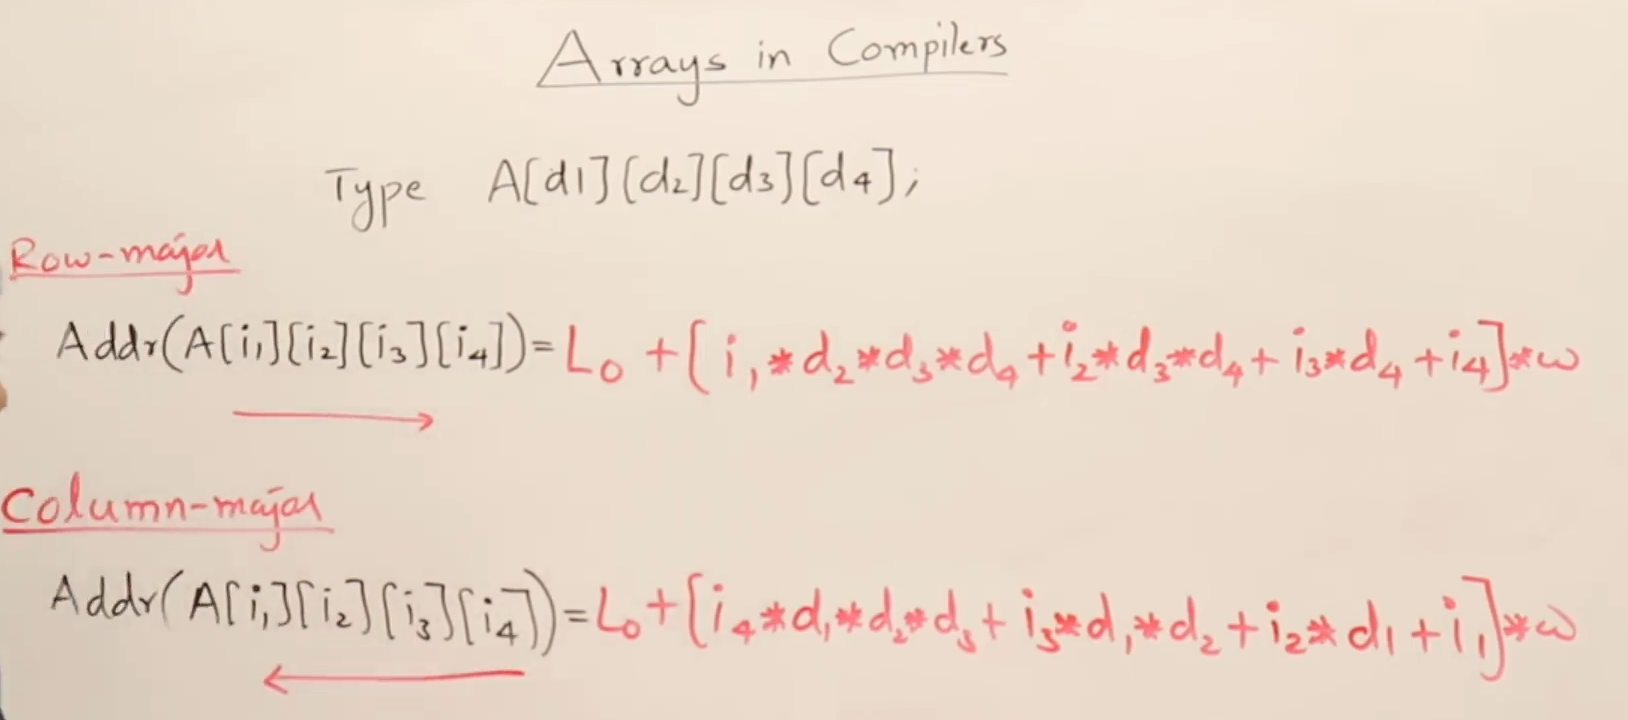 Arrays in Compilers
Type A[d1][d2][d3][d4];
Row-major
Addr(A[i1][i2][i3][i4])=L0+[i1*d2*d3*d4+i2*d3*d4+i3*d4+i4]*w
Column-major
Addr(A[i1][i2][i3][i4])=L0+[i4*d1*d2*d3+i3*d1*d2+i2*d1+i1]*w